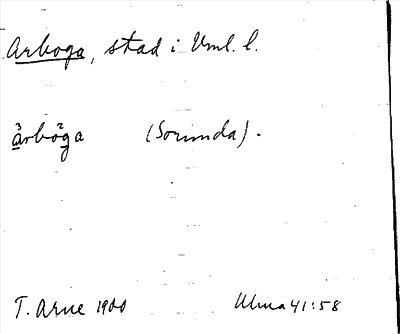 Arboga, stad i Vml. l.
årbòga (Sorunda).
T. Arne 1900 Ulma 41:58